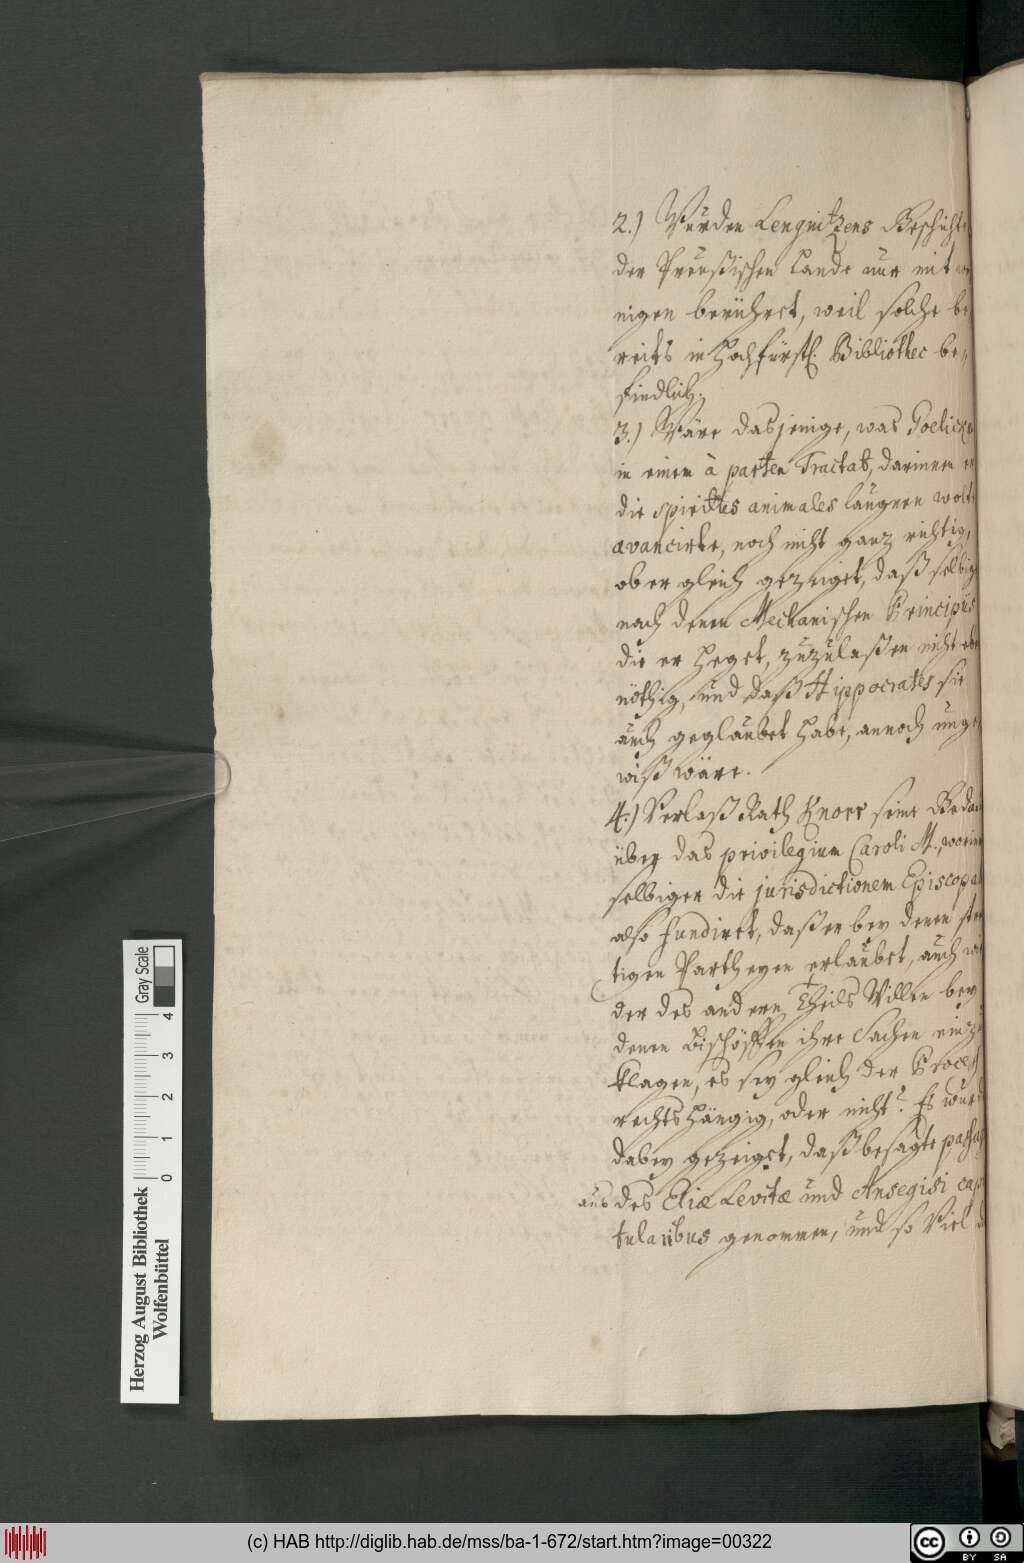 2.) Würden Lengnitzens Geschichte
der Preußischen Lande nur mit we
nigen berühret, weil solche be
reits in Hochfürstl. Bibliothec be-
findlich.
3.) Wäre dasjenige, was Goelicke
in einem à parten Tractat, darinnen er
die spiritus animales läugnen wolte
avancirte, noch nicht ganz richtig,
ob er gleich gezeiget, daß selbige
nach denen Mechanischen Principiis
die er heget, zuzulaßen nicht eben
nöthig, und daß Hippocrates sie
auch geglaubet habe, annoch unge-
wiß wäre.
4.) Verlaß Rath Knorr seine Gedan
über das privilegium Caroli M., worinn
selbiger die jurisdictionem Episcopal
also fundiret, daß er bey denen strei
tigen Partheyen erlaubet, auch wi
der des andern Theils Willen bey
denen Bischöffen ihre Sachen einzu
klagen, es sey gleich der Process
rechtshängig, oder nicht? Es wurde
dabey gezeiget, daß besagte
aus des Eliæ Levitæ und Ansegisi capi
tularibus genommen, und so viel
Herzog August Bibliothek
Wolfenbüttel
0 1 2 3 4
Gray Scale
(c) HAB http://diglib.hab.de/mss/ba-1-672/start.htm?image=00322
cc BY SA